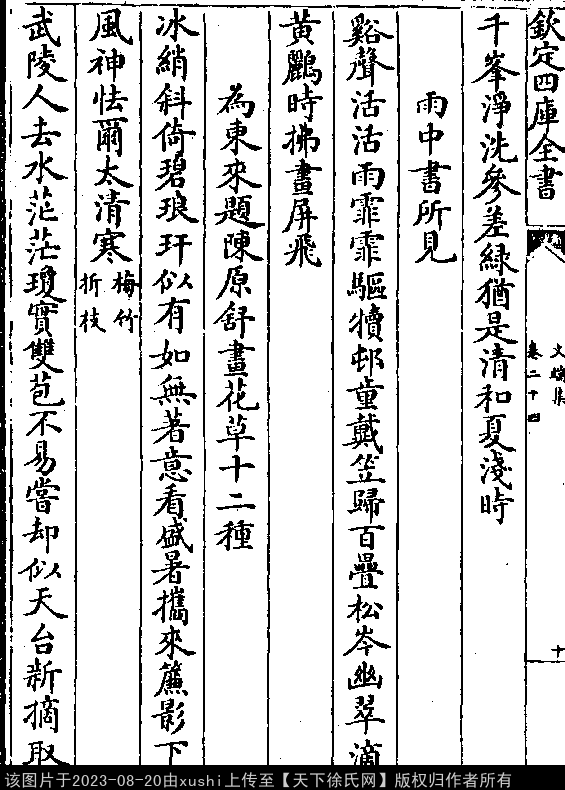 欽定四庫全書
文端集
卷二十四
十
千峯淨洗參差綠猶是清和夏淺時
雨中書所見
谿聲活活雨霏霏驅犢邨童戴笠歸百疊松岑幽翠滴
黃鸝時拂畫屏飛
為東來題陳原舒畫花草十二種
冰綃斜倚碧琅玕似有如無著意看盛暑攜來簾影下
風神怯爾太清寒梅竹折枝
武陵人去水茫茫瓊實雙苞不易嘗却似天台新摘取
该图片于2023-08-20由xushi上传至【天下徐氏网】版权归作者所有